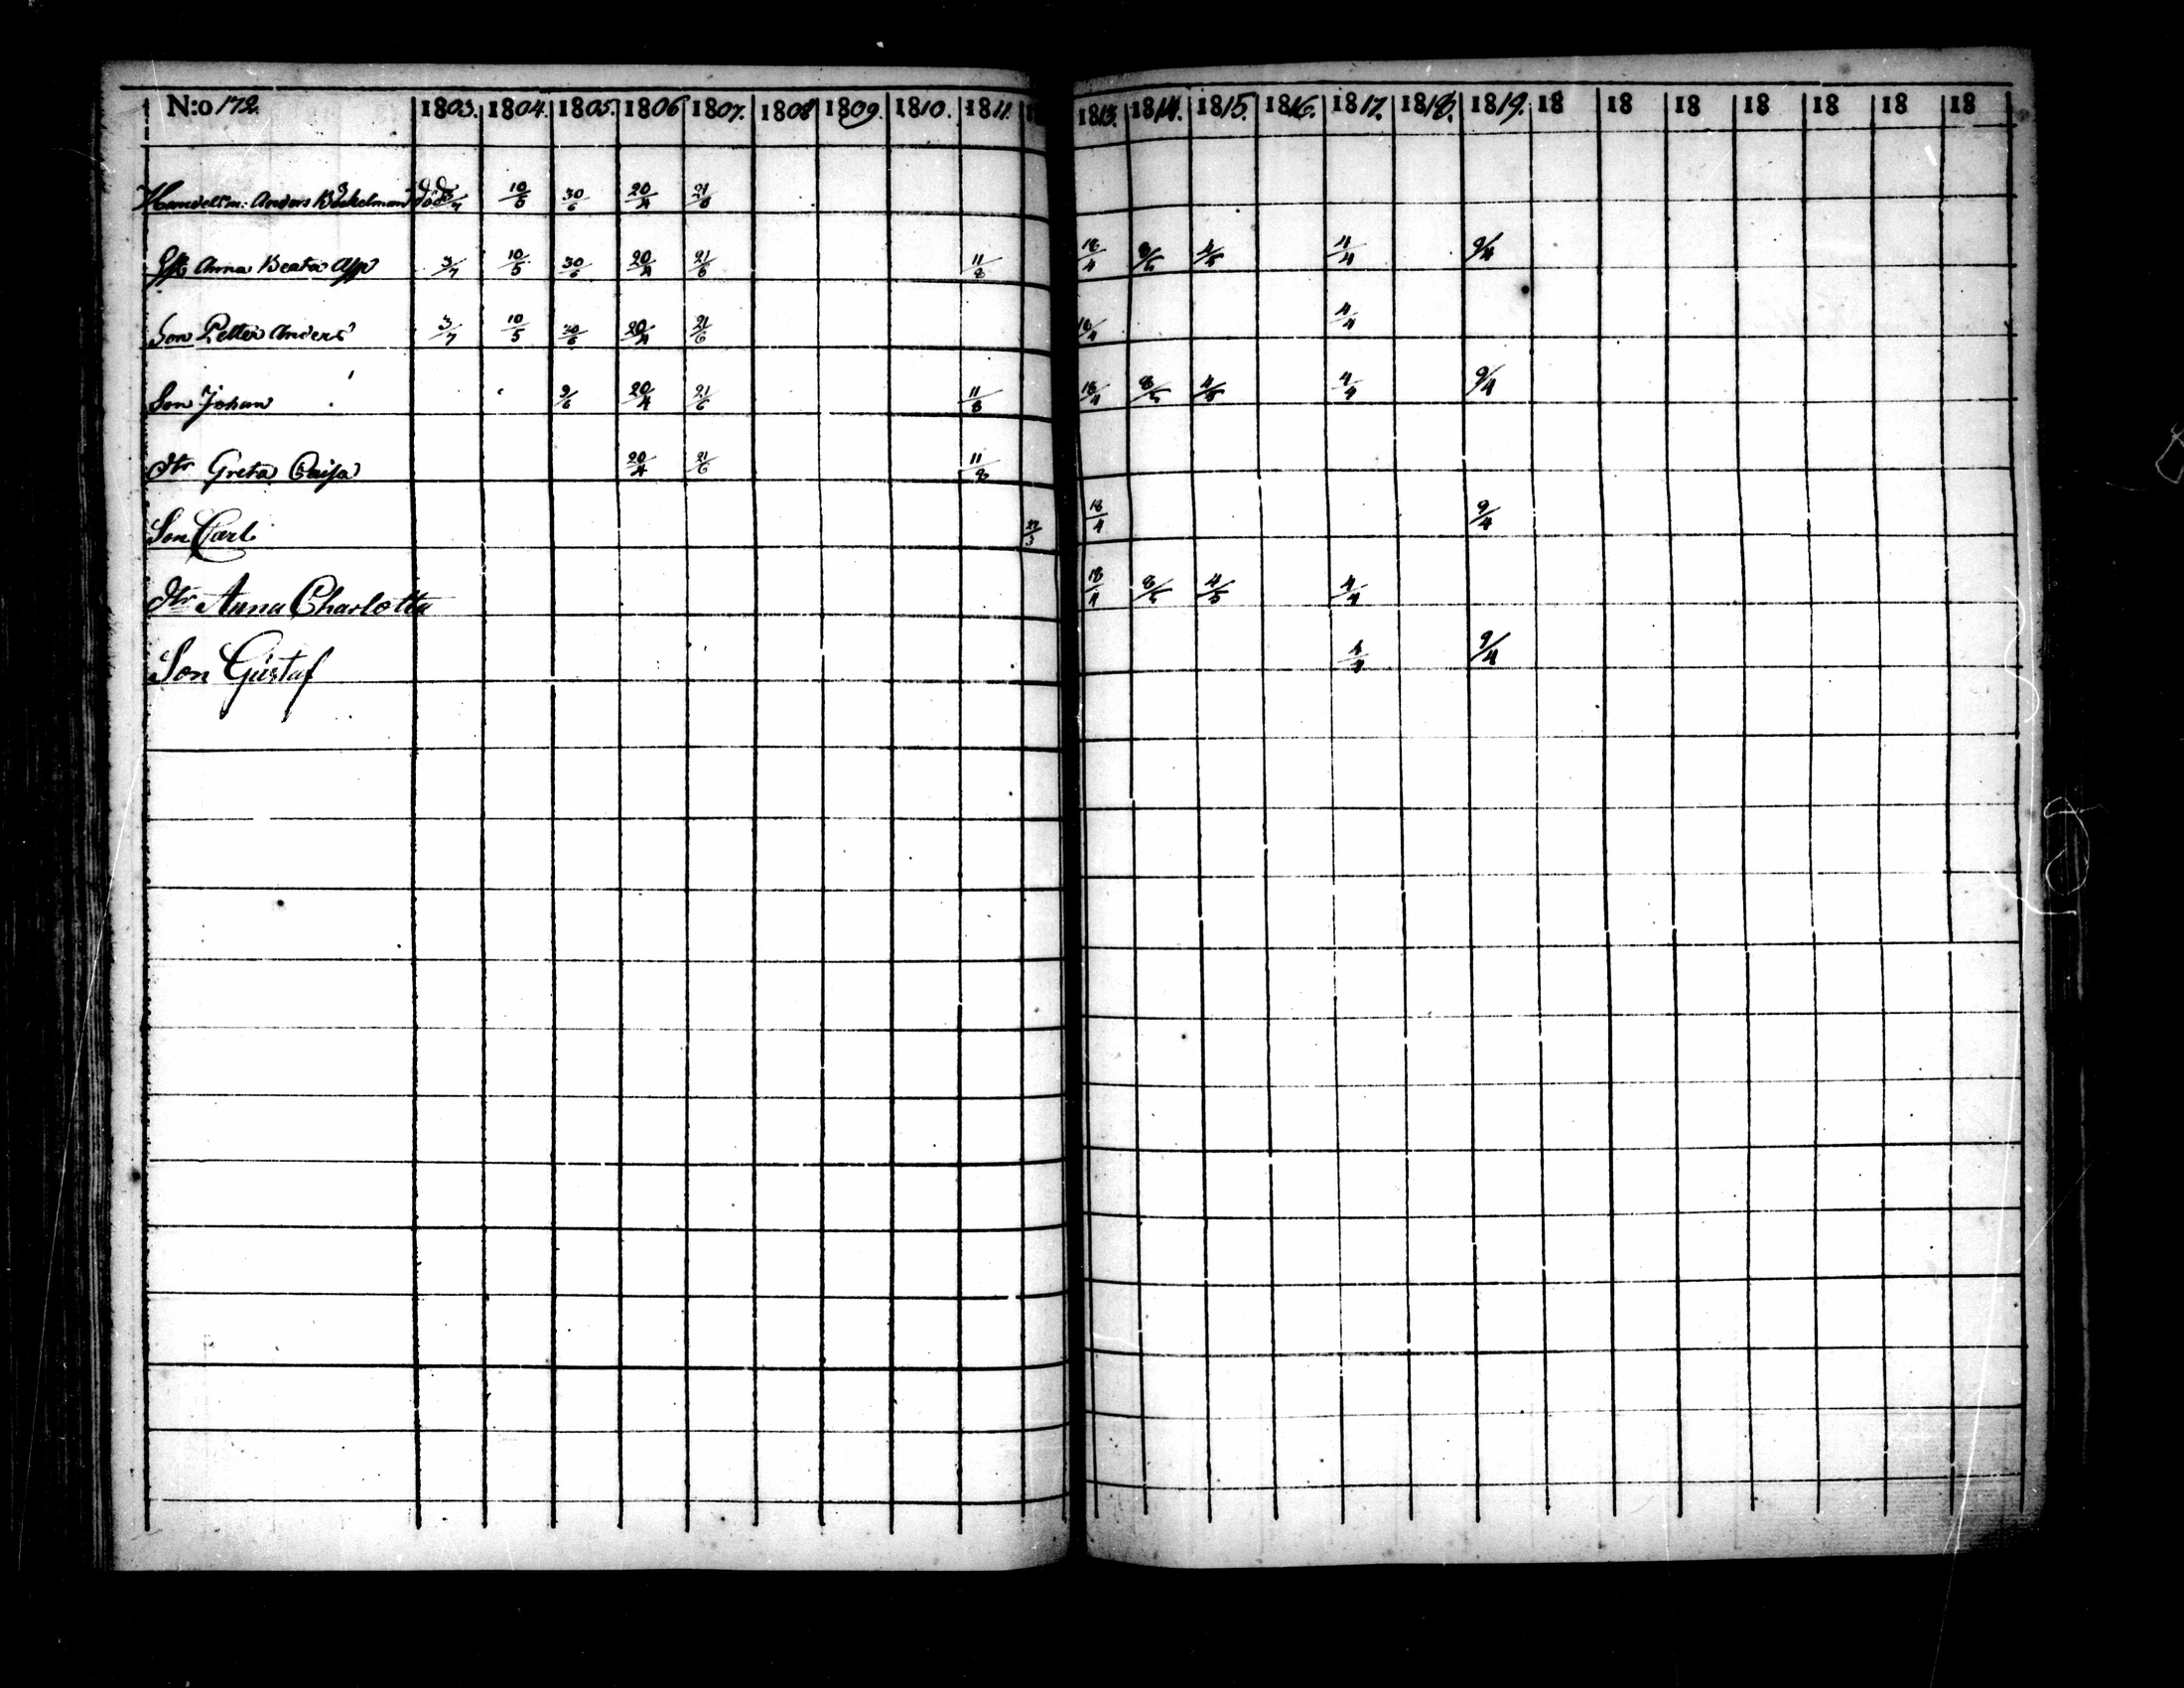 N:o 172 1803. 1804. 1805. 1806 1807. 1808 1809. 1810. 1811. 1813. 1814. 1815. 1816. 1817. 1818. 1819. 18 18 18 18 18 18 18
Handelsm: Anders Böckelman död 3/7 10/5 30/6 20/4 21/6
Anna Beata Asp 3/7 10/5 30/6 20/4 21/6 11/8 18/4 8/5 4/5 4/4 9/4
Son Petter Anders 3/7 10/5 30/6 20/4 21/6 18/4 4/4
Son Johan 9/6 20/4 21/6 11/8 18/4 8/5 4/5 4/4 9/4
dtr Greta Caisa 20/4 21/6 11/8
Son Carl 18/4 9/4
dtr Anna Charlotta 18/4 8/5 4/5 4/4
Son Gustaf 4/4 9/4